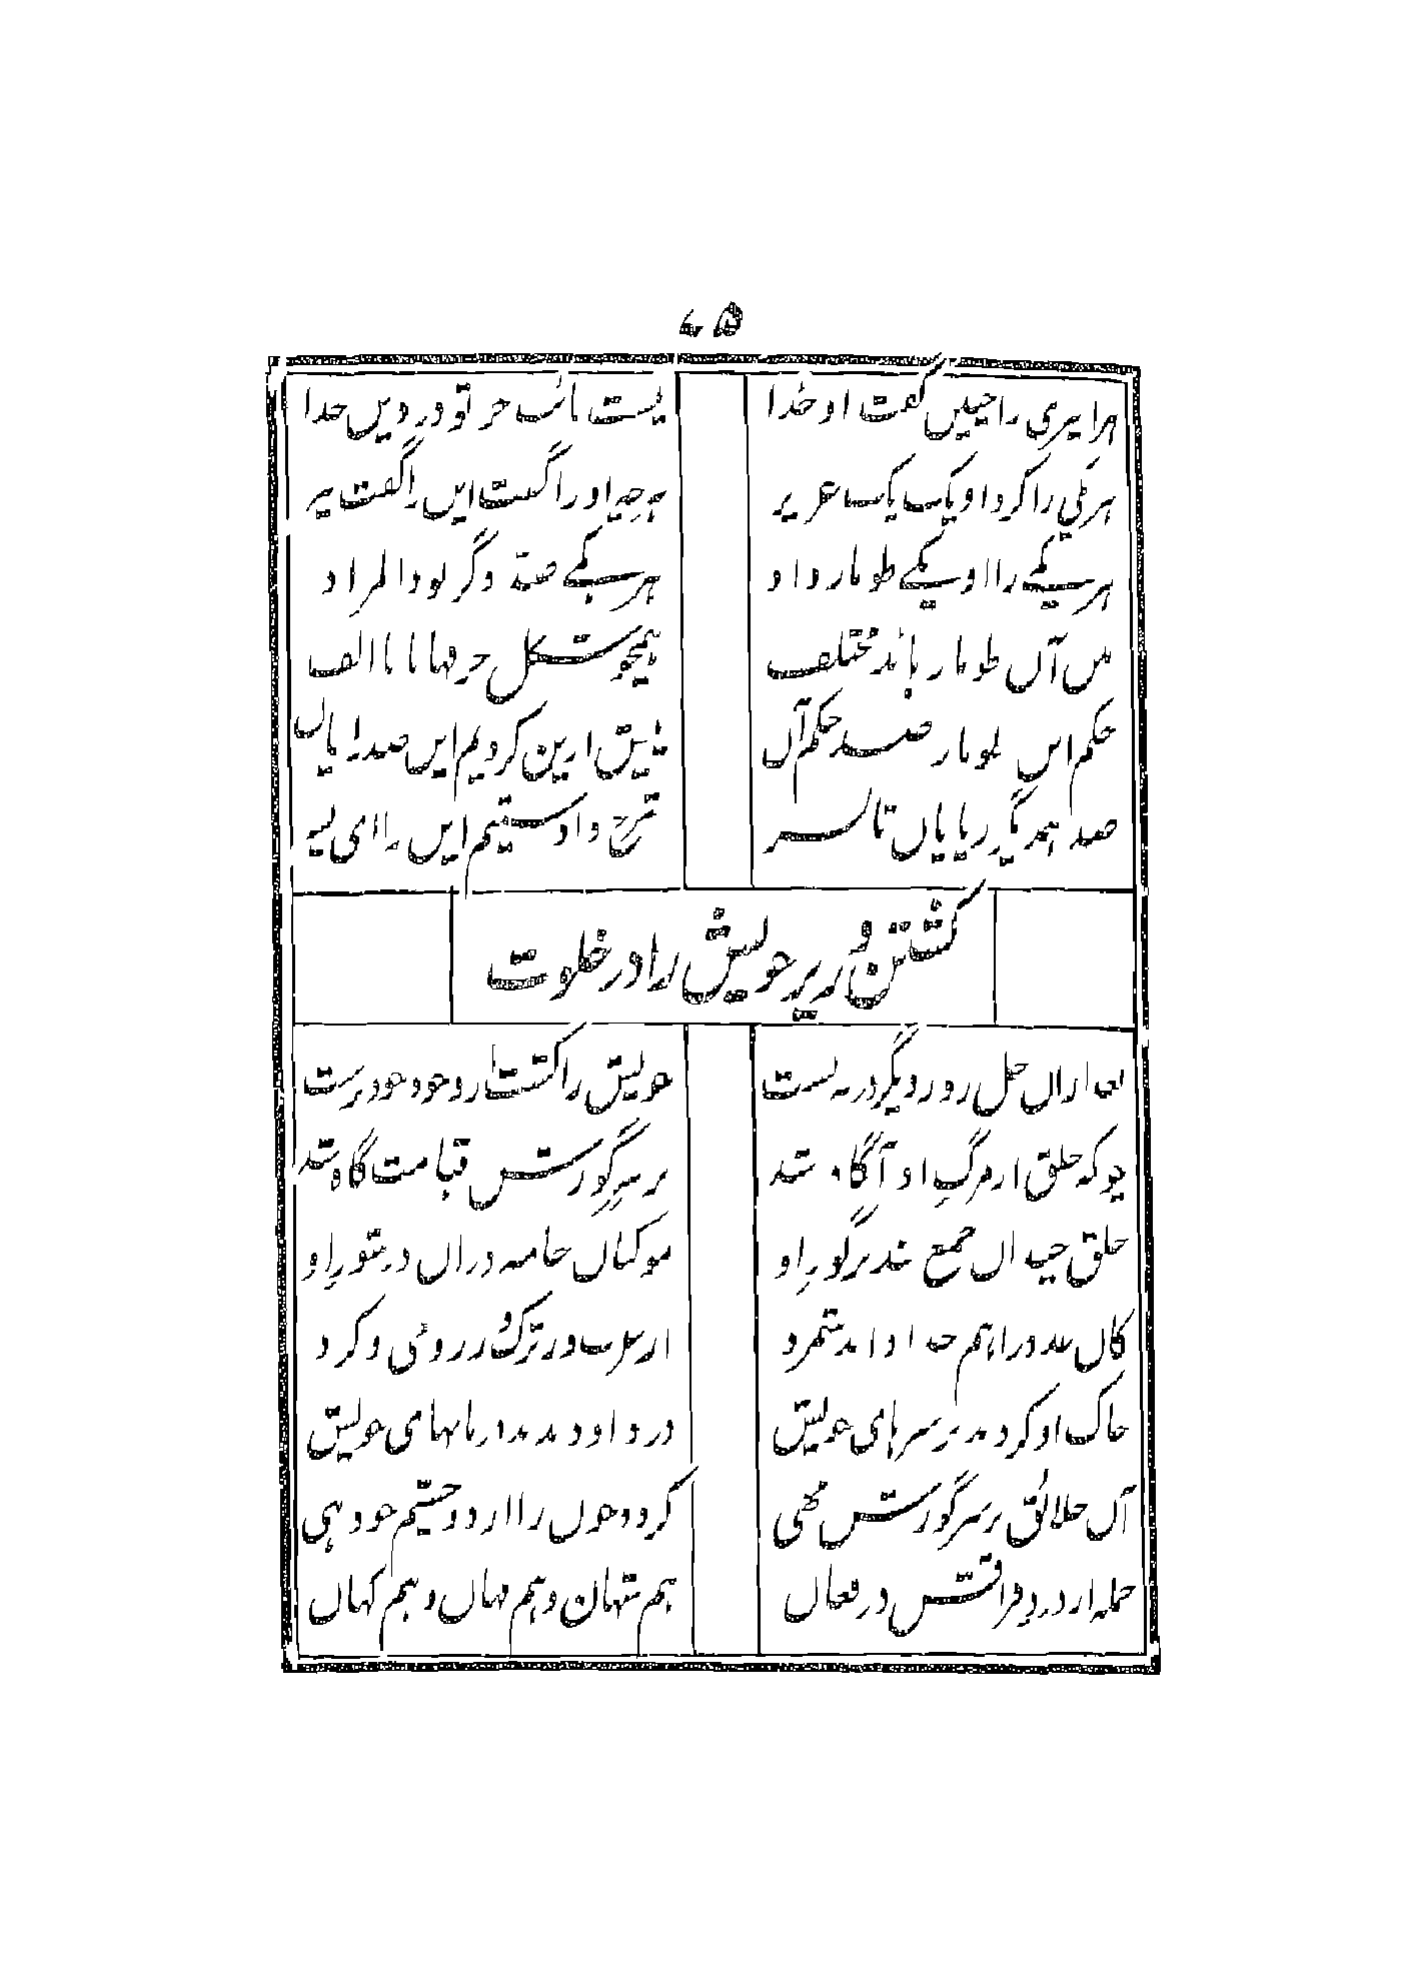 ۶۵
هر امیری را چنین گفت او جدا نیست نائب جز تو در دین خدا
هر یکی را کرد او یک یک عزیز هرچه او را گفت این را گفت نیز
هر یکے را او یکے طومار داد هر یکے ضد دگر بود المراد
متن آن طومارها بد مختلف همچو شکل حرفها یا تا الف
حکم این طومار ضد حکم آن پیش ازین کردیم این ضد را بیان
ضد همدیگر ز پایان تا بسر شرح دادستیم این را ای پسر
کشتن وزیر خویش را در خلوت
بعد ازان چل روز دیگر در به بست خویش را کشت از وجود خود برست
چونکه خلق از مرگِ او آگاه شد بر سرِ گورش قیامت گاه شد
خلق چندان جمع شد بر گورِ او موکنان جامه دران در شورِ او
کان عدد را هم خدا داند شمرد از عرب وز ترک وز رومی و کرد
خاک او کردند بر سرهای خویش درد او دیدند درمانهای خویش
آن خلائق بر سر گورش مهی کرده خون را از دو چشم خود رهی
جمله از دردِ فراقش در فغان هم شهان و هم مهان و هم کهان